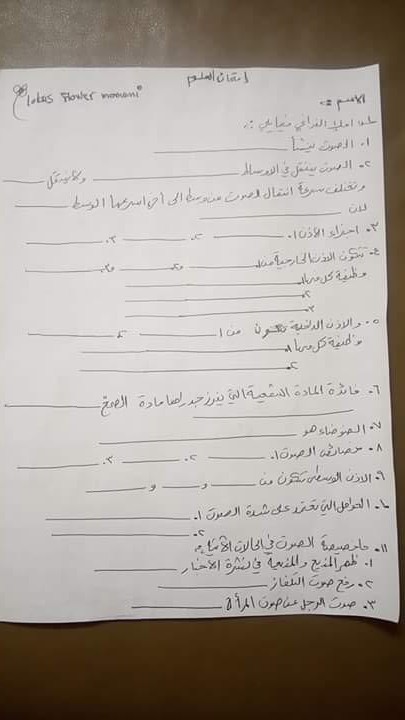 امتحان العلوم
lotus flower momani
الاسم :-
س١ املأ الفراغ فيما يلي :-
١. الصوت ينشأ
٢. الصوت ينتقل في الاوساط ولا ينتقل
وتختلف سرعة انتقال الصوت من وسط الى أخر اسرعها الوسط
لان
٣. اجزاء الأذن ١. ٢. ٣.
٤. تتكون الاذن الخارجية من ١. ٢. ٣.
وظيفة كل منها ١.
٢.
٣.
٥. والاذن الداخلية تتكون من ١ ٢.
وظيفة كل منها ١.
٢.
٦. فائدة المادة الشمعية التي يفرز جدرانها مادة الصمغ
٧. الضوضاء هو
٨. من خصائص الصوت ١. ٢. ٣.
٩. الاذن الوسطى تتكون من و و
١٠. العوامل التي تعتمد على شدة الصوت ١.
٢.
١١. ما خاصية الصوت في الحالات الأتية
١. ظهر المذيع والمذيعة في نشرة الأخبار
٢. رفع صوت التلفاز
٣. صوت الرجل عن صوت المرأة